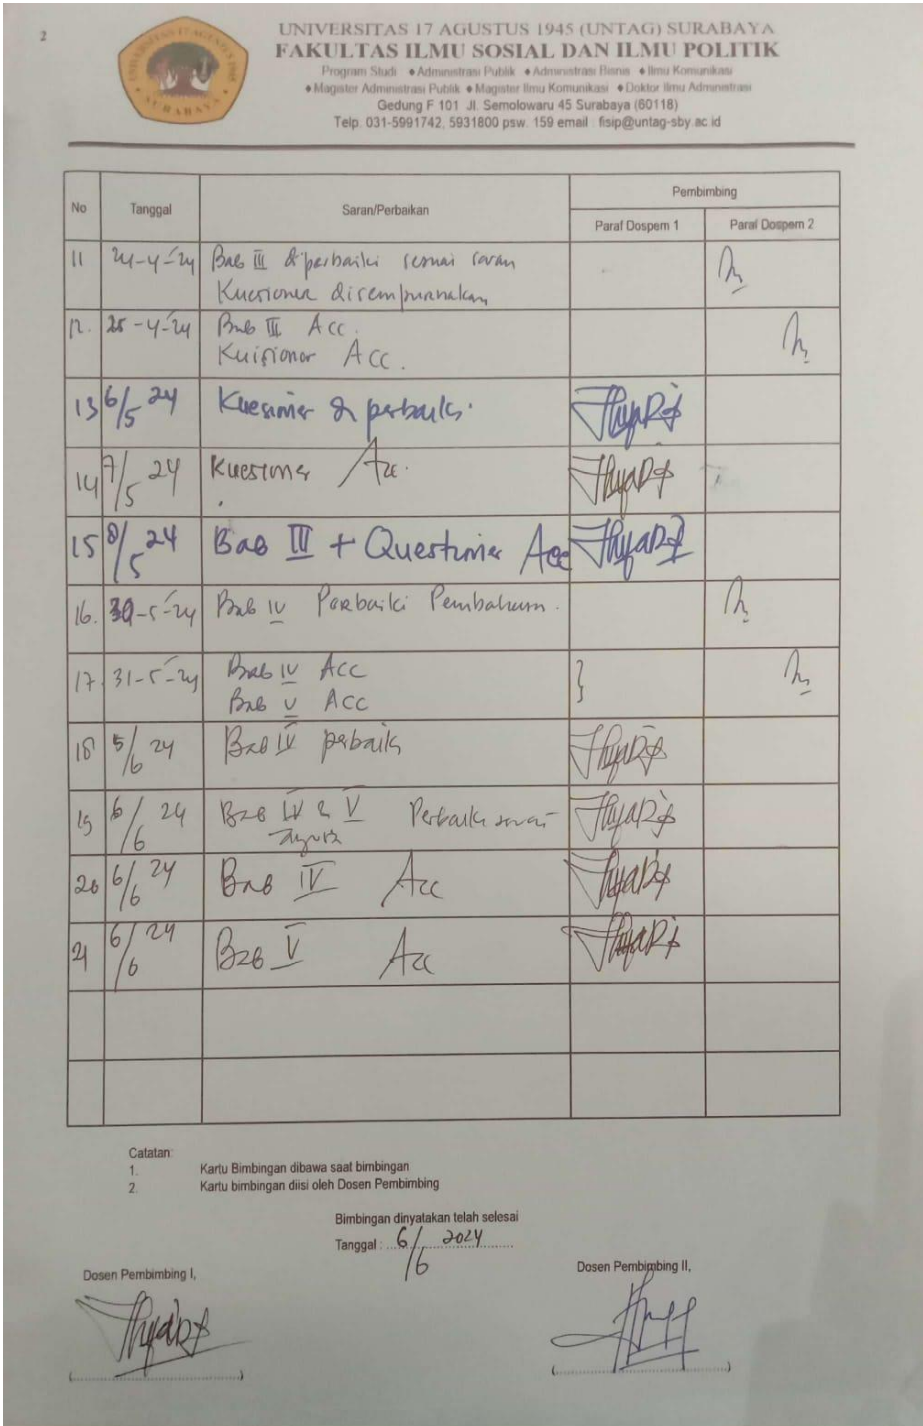 2
UNIVERSITAS 17 AGUSTUS 1945 (UNTAG) SURABAYA
FAKULTAS ILMU SOSIAL DAN ILMU POLITIK
Program Studi ♦Administrasi Publik ♦Administrasi Bisnis ♦Ilmu Komunikasi
♦Magister Administrasi Publik ♦Magister Ilmu Komunikasi ♦Doktor Ilmu Administrasi
Gedung F 101 Jl. Semolowaru 45 Surabaya (60118)
Telp. 031-5991742, 5931800 psw. 159 email : fisip@untag-sby.ac.id
SURABAYA
No Tanggal Saran/Perbaikan Pembimbing
Paraf Dospem 1 Paraf Dospem 2
11 24-4-'24 Bab III diperbaiki sesuai saran
Kuesioner disempurnakan
12. 25-4-'24 Bab III Acc.
Kuisioner Acc.
13 6/5 24 Kuesioner diperbaiki.
14 7/5 24 Kuesioner Acc.
15 8/5 24 Bab III + Questioner Acc
16. 30-5-'24 Bab IV Perbaiki Pembahasan.
17. 31-5-'24 Bab IV Acc
Bab V Acc
18 5/6 24 Bab IV perbaiki
19 6/6 24 Bab IV & V Perbaiki
20 6/6 24 Bab IV Acc
21 6/6 24 Bab V Acc
Catatan:
1. Kartu Bimbingan dibawa saat bimbingan
2. Kartu bimbingan diisi oleh Dosen Pembimbing
Bimbingan dinyatakan telah selesai
Tanggal : 6/6 2024
Dosen Pembimbing I, Dosen Pembimbing II,